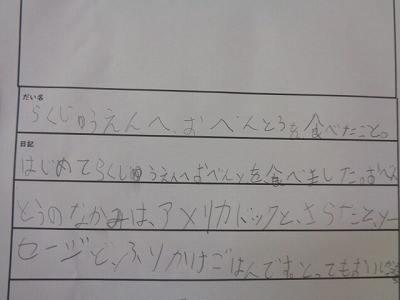 だい名
らくじゅうえんへ、おべんとうを食べたこと。
日記
はじめてらくじゅうえんへおべんとを食べました。おべん
とうのなかみは、アメリカドックと、さらだと、ソー
セージと、ふりかけごはんです。とってもおいし